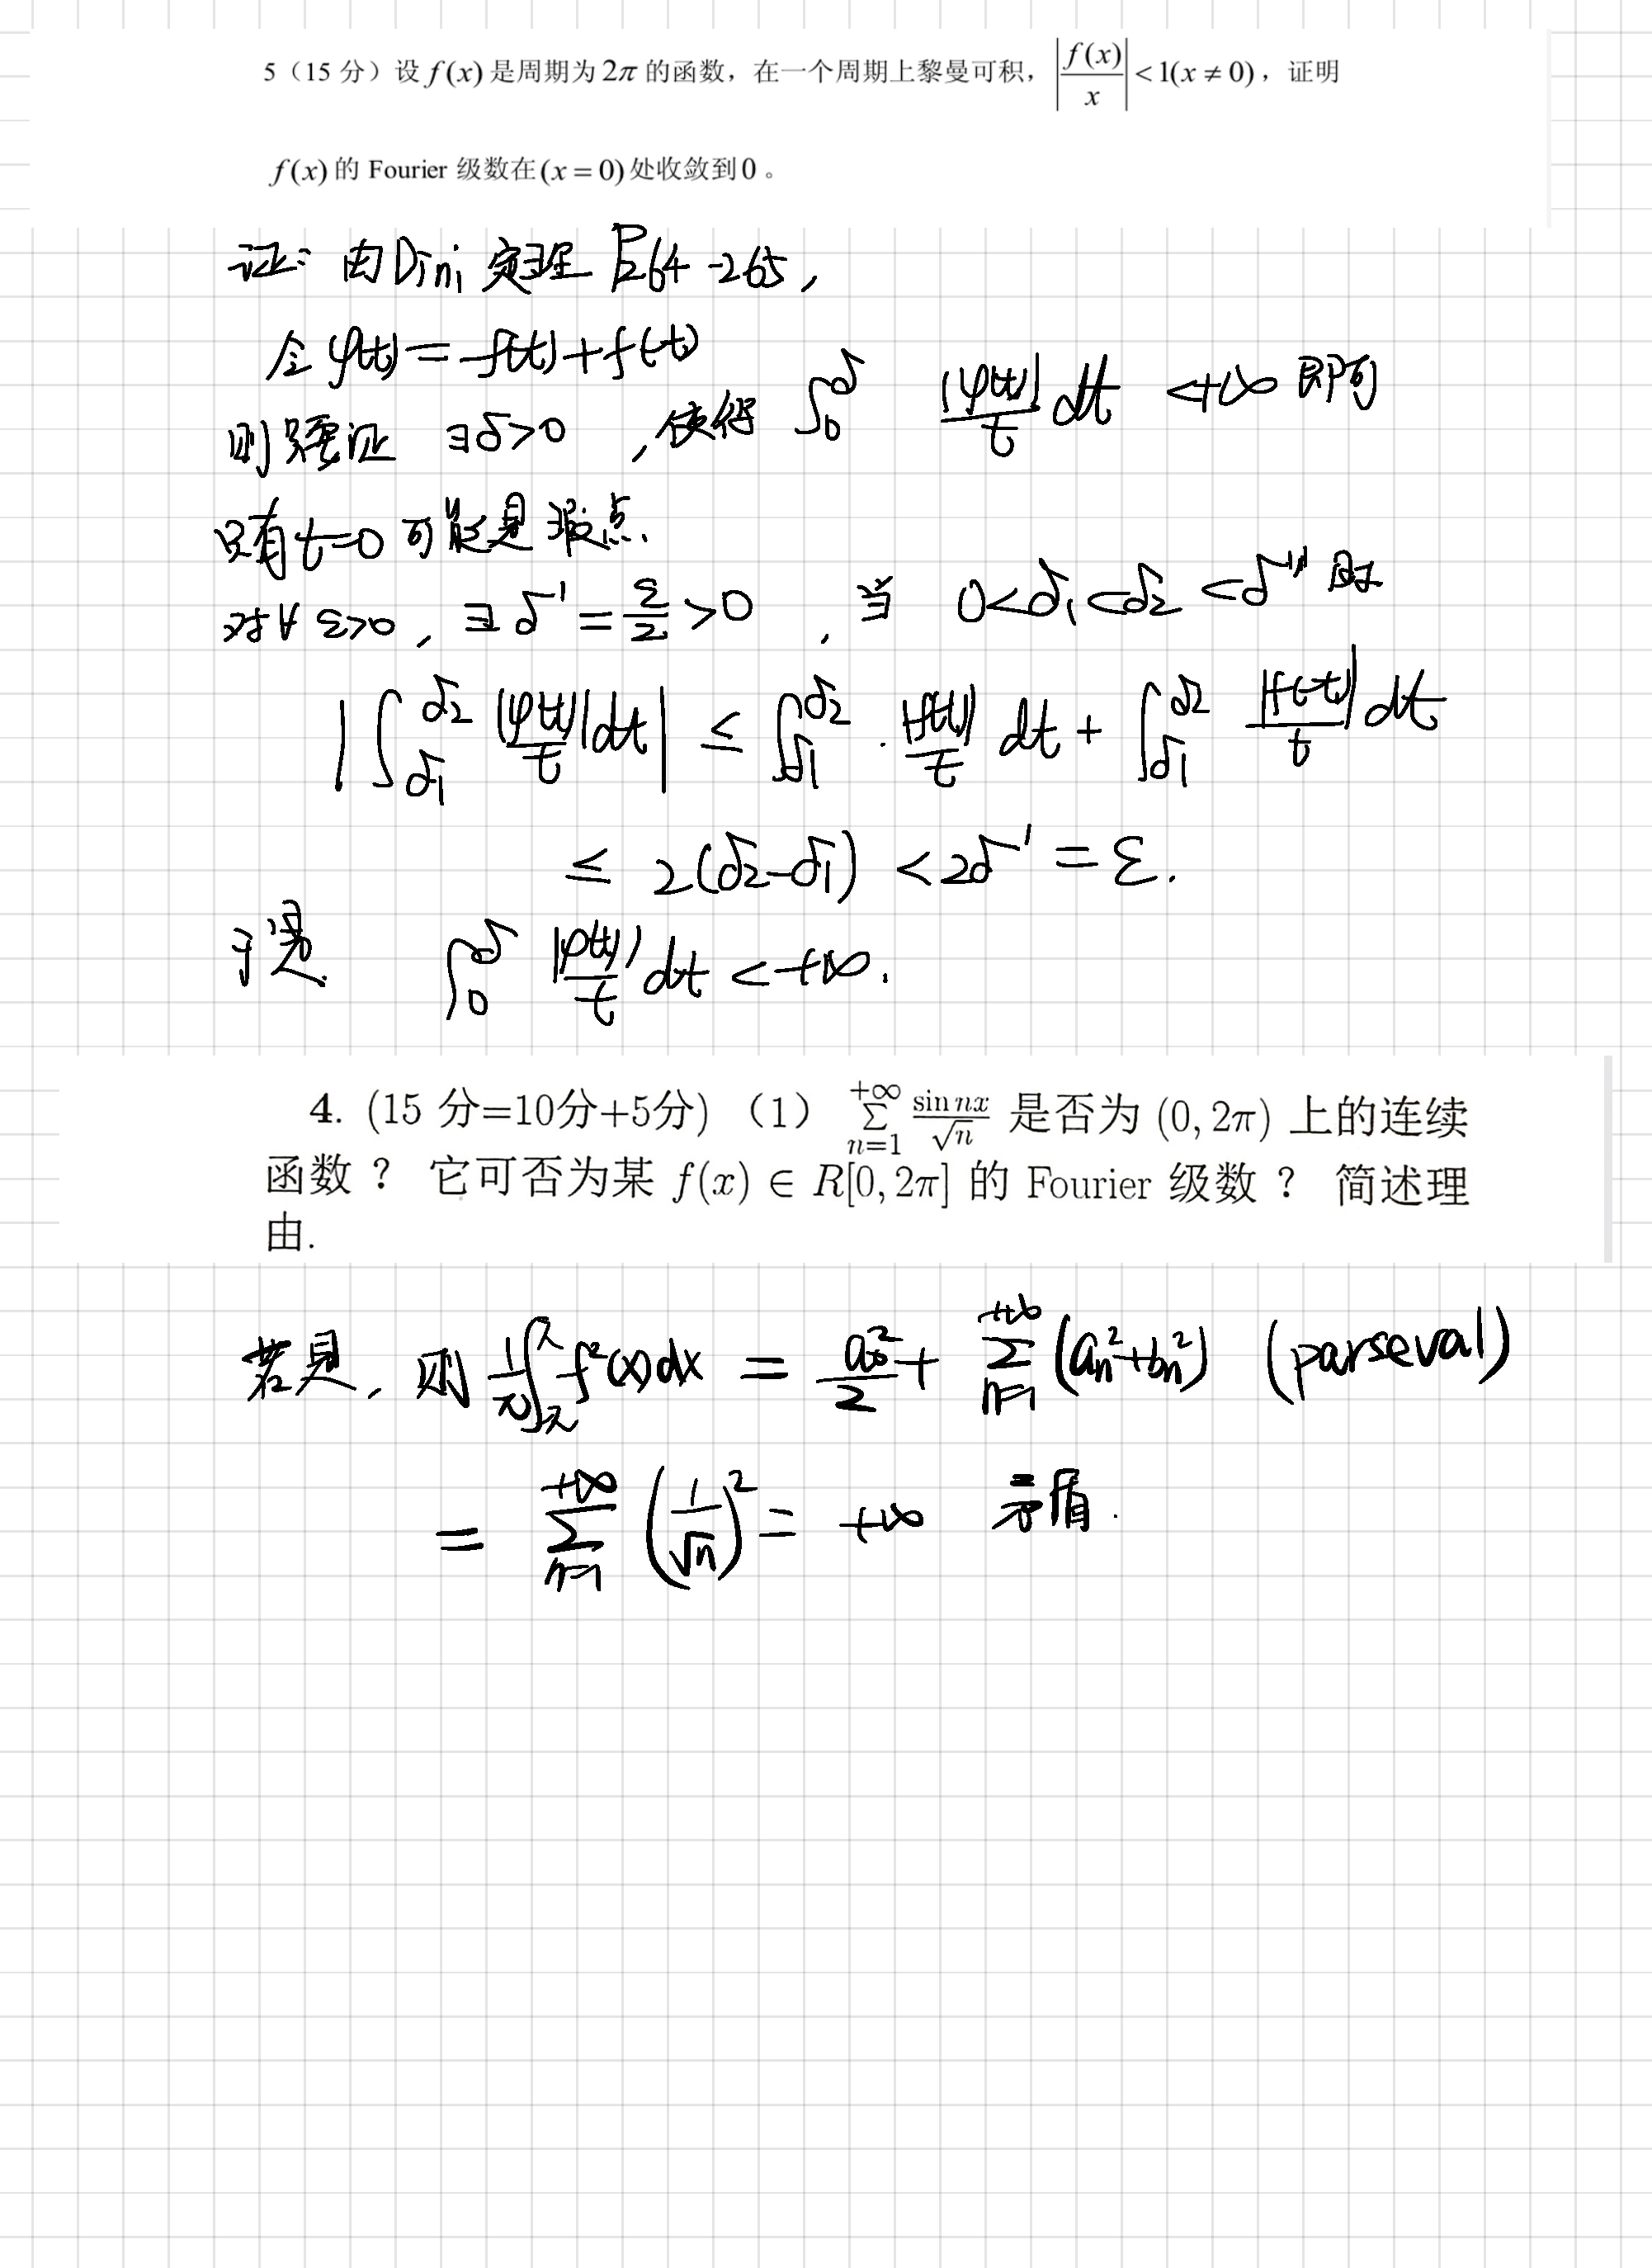 5（15 分）设 f(x) 是周期为 2π 的函数，在一个周期上黎曼可积，|f(x)/x| < 1(x ≠ 0)，证明
f(x) 的 Fourier 级数在 (x = 0) 处收敛到 0 。
证: 由Dini 定理 P264-265,
令 φ(t) = f(t)+f(-t)
则只要证 ∃δ>0 ,使得 ∫₀^δ |φ(t)|/t dt <+∞ 即可
只有t=0 可能是瑕点.
对∀ ε>0, ∃ δ' = ε/2 >0 , 当 0<δ₁<δ₂<δ' 时
|∫_{δ₁}^{δ₂} |φ(t)|/t dt| ≤ ∫_{δ₁}^{δ₂} |f(t)|/t dt + ∫_{δ₁}^{δ₂} |f(-t)|/t dt
≤ 2(δ₂-δ₁) < 2δ' = ε.
于是 ∫₀^δ |φ(t)|/t dt < +∞.
4. (15 分=10分+5分) （1） ∑_{n=1}^{+∞} sin nx/√n 是否为 (0, 2π) 上的连续
函数？ 它可否为某 f(x) ∈ R[0, 2π] 的 Fourier 级数？ 简述理
由.
若是, 则 1/π ∫_{-π}^{π} f²(x)dx = a₀²/2 + ∑_{n=1}^{+∞} (aₙ²+bₙ²) (parseval)
= ∑_{n=1}^{+∞} (1/√n)² = +∞ 矛盾.